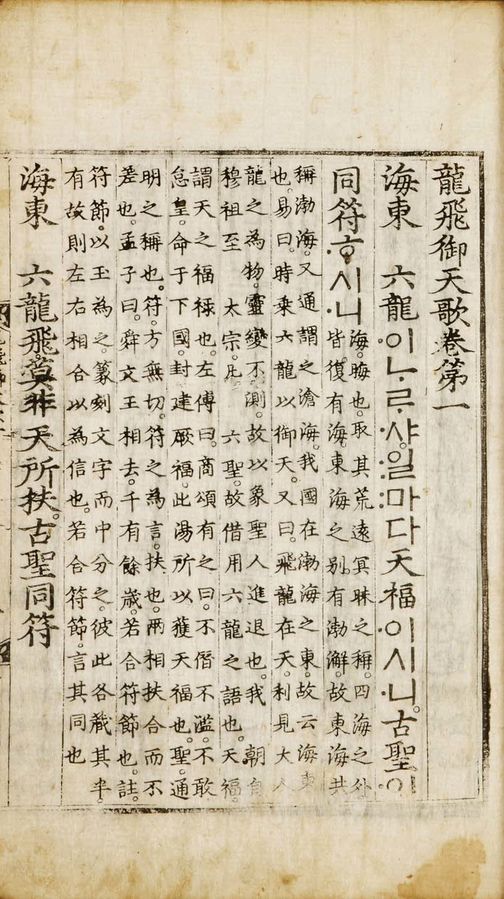 龍飛御天歌卷第一
海東 六龍이ᄂᆞᄅᆞ샤일마다天福이시니。古聖이
同符ᄒᆞ시니
海。晦也。取其荒遠冥昧之稱。四海之外
皆復有海東海之别。有渤澥。故東海共
稱渤海。又通謂之滄海。我國在渤海之東。故云海東
也。易曰。時乗六龍以御天。又曰。飛龍在天。利見大人
龍之為物。靈變不測。故以象聖人進退也。我 朝自
穆祖至 太宗。凡 六聖。故借用六龍之語也。天福。
謂天之福禄也。左傳曰。商頌有之曰。不僭不濫。不敢
怠皇。命于下國。封建厥福。此湯所以獲天福也。聖。通
明之稱也。符。方無切。符之為言。扶也。兩相扶合而不
差也。孟子曰。舜文王相去。千有餘歳。若合符節也。註。
符節。以玉為之。篆刻文字而中分之。彼此各藏其半。
有故則左右相合以為信也。若合符節。言其同也
海東 六龍飛。莫非天所扶。古聖同符